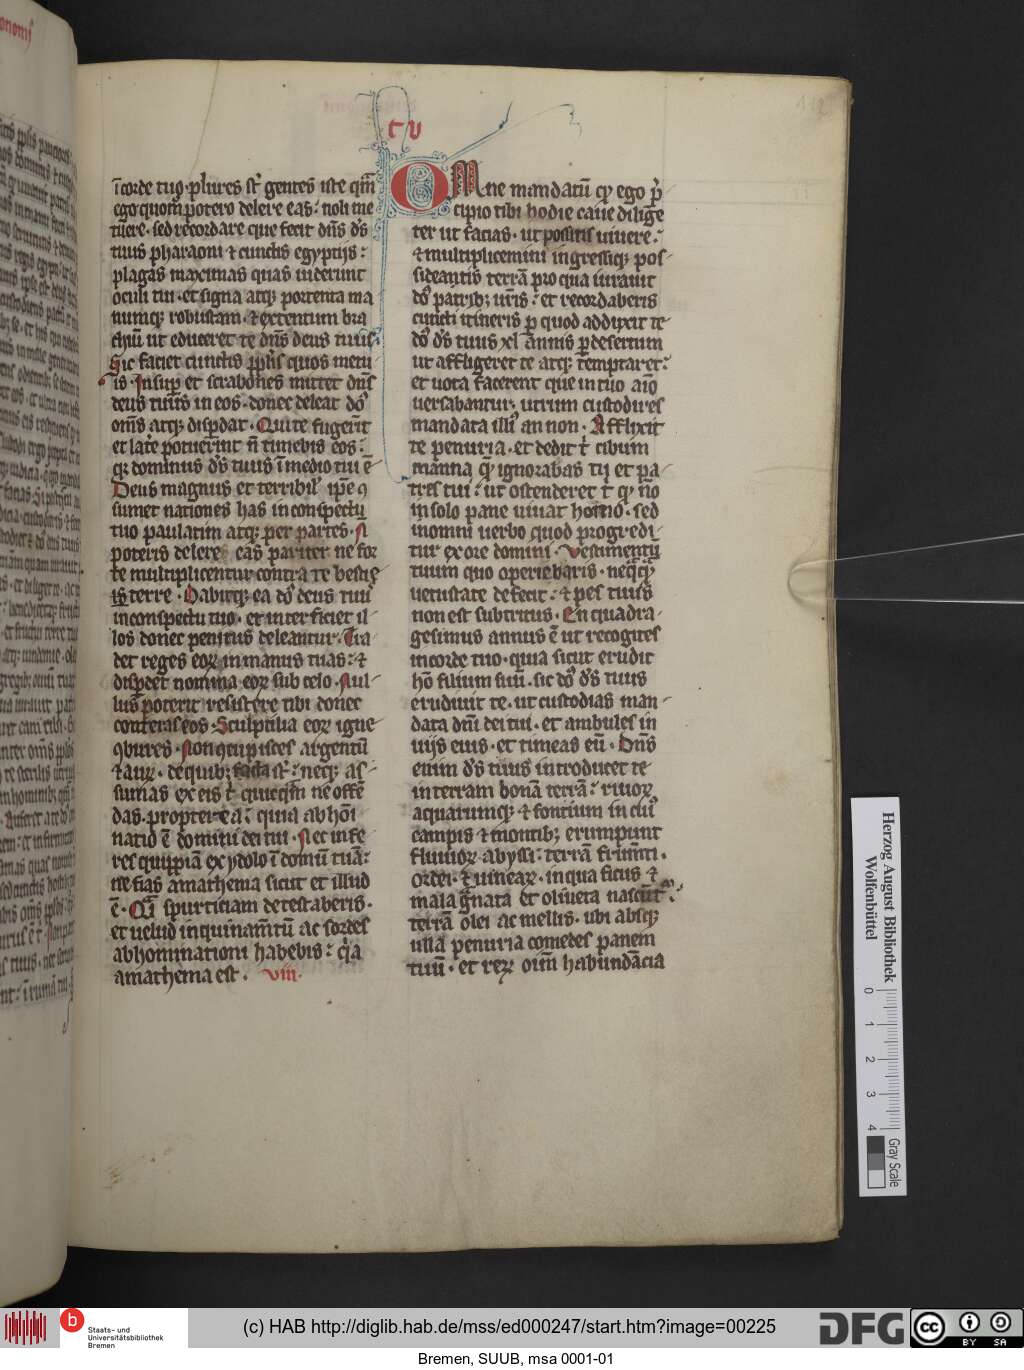 t v
ı̄ corde tuo · plures st̄ gentes iste qm̄
ego quom̄ potero delere eas : noli me
tuere · sed recordare que fecit dn̄s d̄s
tuus pharaoni ⁊ cunctis egyptijs :
plagas maximas quas uiderunt
oculi tui · et signa atqꝫ portenta ma
numqꝫ robustam · ⁊ extentum bra
chiū ut educeret te dn̄s deus tuus
Sic faciet cunctis pp̄lis quos metu
is · Insuꝑ et scrabones mittet dn̄s
deus tuus in eos · donec deleat do᷒
om̄s atqꝫ disꝑdat · Qui te fugerīt
et late͛ potuerīnt n̄ timebis eos :
qꝛ dominus d̄s tuus ı̄ medio tui ē
Deus magnus et terribil᷒ ip̄e ꝯ
sumet nationes has in conspectu
tuo paulatim atqꝫ per partes · N̄
poteris delere eas pariter ne for
te multiplicentur contra te bestie
terre · Dabitqꝫ ea do᷒ deus tuus
in conspectu tuo · et interficiet il
los donec penitus deleantur · Tra
det reges eoꝝ in manus tuas : ⁊
disꝑdet nomina eoꝝ sub celo · Nul
lus poterit resistere tibi donec
conteras eos · Sculptilia eoꝝ igne
ꝯbures · Non ꝯcupisces argentū
⁊ auꝝ · de quibꝫ facta st̄ : neqꝫ as
sumas ex eis t᷒ quicqm̄ ne offē
das · propterea : quia abhōı
natio ē domini dei tui · Nec infe
res quippiā ex ydolo ı̄ domū tuā :
ne fias anathema sicut et illud
ē · Qm̄ spurticiam detestaberis ·
et uelud inquinam̄tū ac sordes
abhominationi habebis : qͥa
anathema est · viii
OMne mandatū qꝫ ego p̄
cipio tibi hodie caue dilige
ter ut facias · ut possitis uiuere :
⁊ multiplicemini ingressiqꝫ pos
sideantis terrā pro qua iurauit
do᷒ patribꝫ ur̄is : et recordaberis
cuncti itineris ꝑ quod adduxit te
do᷒ d̄s tuus xl annis ꝑ desertum
ut affligeret te atqꝫ temptaret :
et nota facerent que in tuo aı̄o
uersabantur · utrum custodires
mandata illi᷒ an non · Afflixit
te penuria · et dedit t᷒ cibum
manna qd̄ ignorabas tu et pa
tres tui : ut ostenderet t᷒ qꝫ n̄o
in solo pane uiuat homo · sed
in omni uerbo quod progredi
tur ex ore domini · Vestimentū
tuum quo operiebaris · neqͣqꝫ
uetustate defecit : ⁊ pes tuus
non est subtritus · En quadra
gesimus annus ē ut recogites
in corde tuo · quia sicut erudit
hō filium suū · sic do᷒ d̄s tuus
erudiuit te · ut custodias man
data dn̄i dei tui · et ambules in
uijs eius · et timeas eū · Dn̄s
enim d̄s tuus introducet te
in terram bonā terrā : riuoꝝ
aquarumqꝫ ⁊ fontium in cui᷒
campis ⁊ montibꝫ erumpunt
fluuioꝝ abyssi : terrā frum̄ti ·
ordei · ⁊ uineaꝝ · in qua ficus ⁊
mala gͣnata et oliueta nascūt :
terrā olei ac mellis · ubi absqꝫ
ulla penuria comedes panem
tuū · et reꝝ oīm habundācia
Herzog August Bibliothek
Wolfenbüttel
0 1 2 3 4
Gray Scale
b
Staats- und
Universitätsbibliothek
Bremen
(c) HAB http://diglib.hab.de/mss/ed000247/start.htm?image=00225
DFG
cc
BY SA
Bremen, SUUB, msa 0001-01